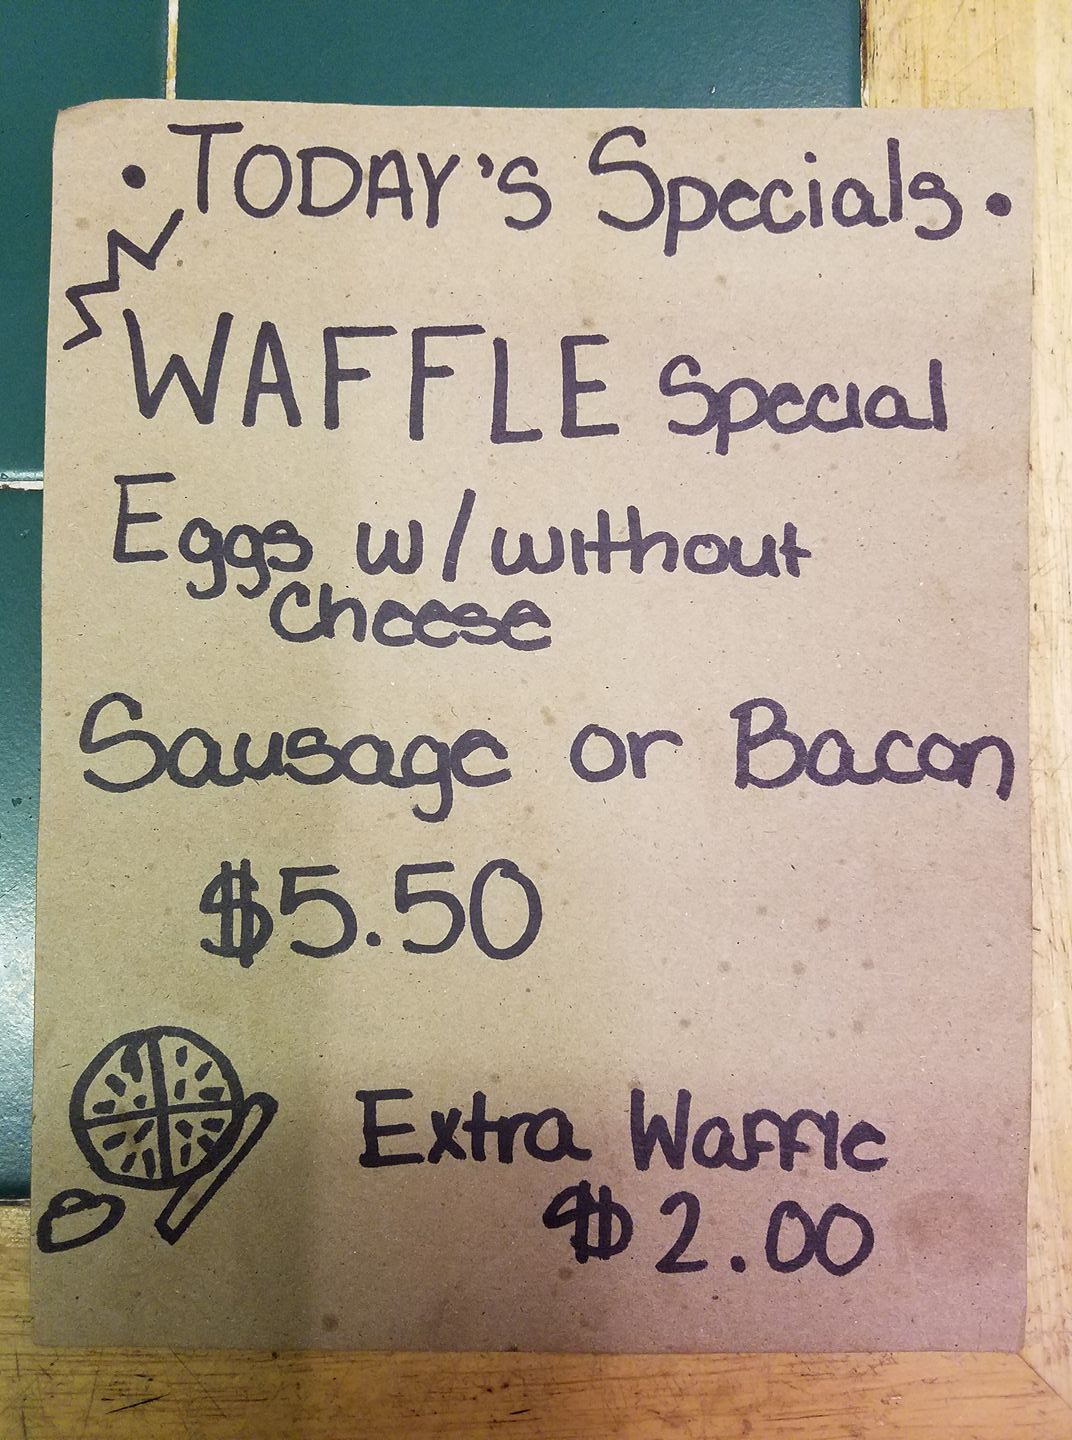 • TODAY's Specials •
WAFFLE Special
Eggs w/without
Cheese
Sausage or Bacon
$5.50
Extra Waffle
$2.00